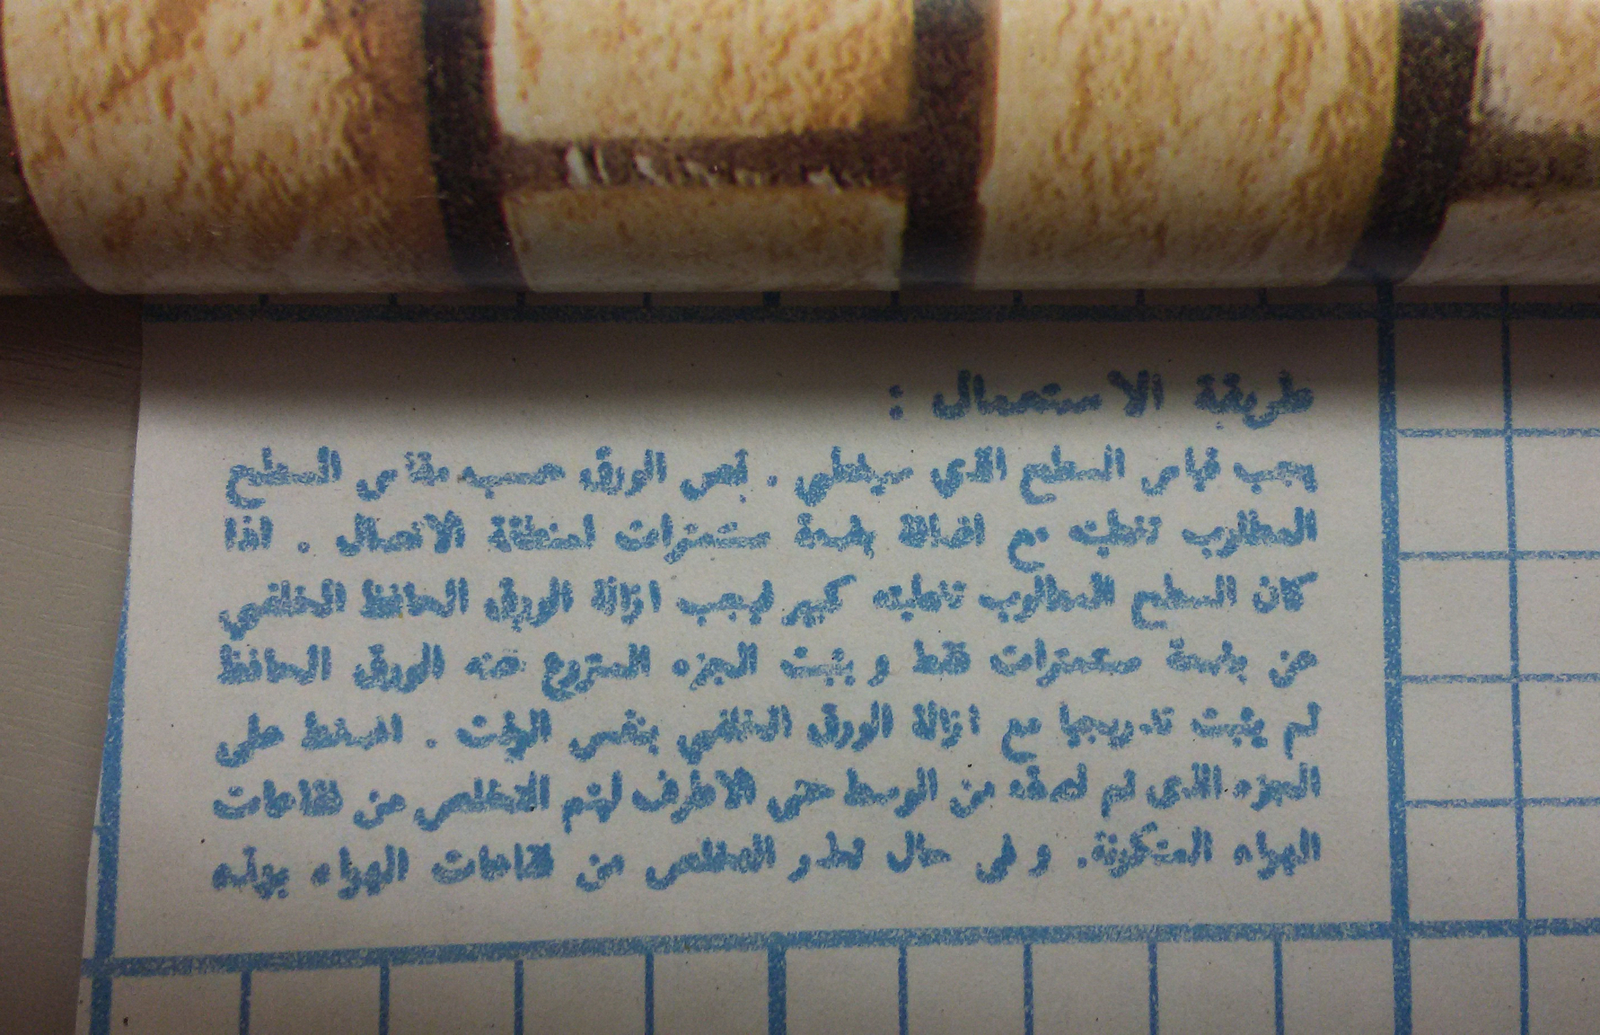 طريقة الاستعمال :
يجب قياس السطح الذي سيغطي . قص الورق حسب مقاس السطح
المطلوب تغطيته مع اضافة بضعة سنتمترات لمنطقة الاتصال . اذا
كان السطح المطلوب تغطيته كبير فيجب ازالة الورق الحافظ الخلفي
عن بضعة سنتمترات فقط و يثبت الجزء المنزوع عنه الورق الحافظ
ثم يثبت تدريجيا مع ازالة الورق الخلفي بنفس الوقت . اضغط على
الجزء الذي تم لصقه من الوسط حتى الاطراف ليتم التخلص من فقاعات
الهواء المتكونة. و في حال تعذر التخلص من فقاعات الهواء